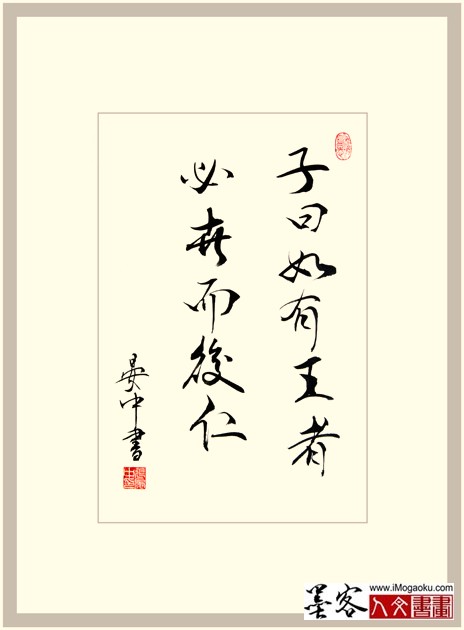 子曰如有王者
必世而後仁
晏中書
墨客
www.iMogaoku.com
人文書畫